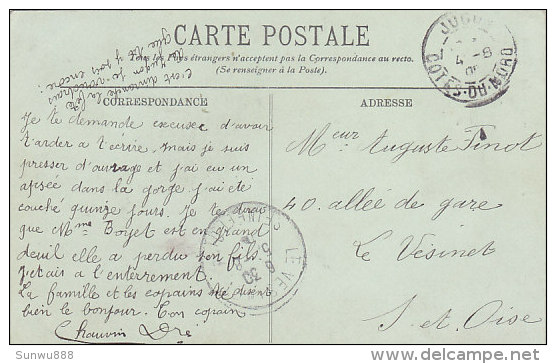 CARTE POSTALE
Tous les Pays étrangers n'acceptent pas la Correspondance au recto.
(Se renseigner à la Poste).
CORRESPONDANCE
ADRESSE
JUGON
4 -8
COTES-DU-NORD
c'est dimanche la fête
de Jugon je voudrais
que tu y sois encore
Je te demande excuse d'avoir
tarder a t'ecrire, mais je suis
presser d'ouvrage et j'ai eu un
apsée dans la gorge j'ai été
couché quinze jours. Je te dirai
que Mme Boyet est en grand
deuil elle a perdu son fils.
J'etais a l'enterrement.
La famille et les copains te disent
bien le bonjour. Ton copain
Chauvin
Meur Auguste Finot
40. allée de gare
Le Vésinet
S. et. Oise
LE VE
5
8
Sunwu888
www.delcampe.net